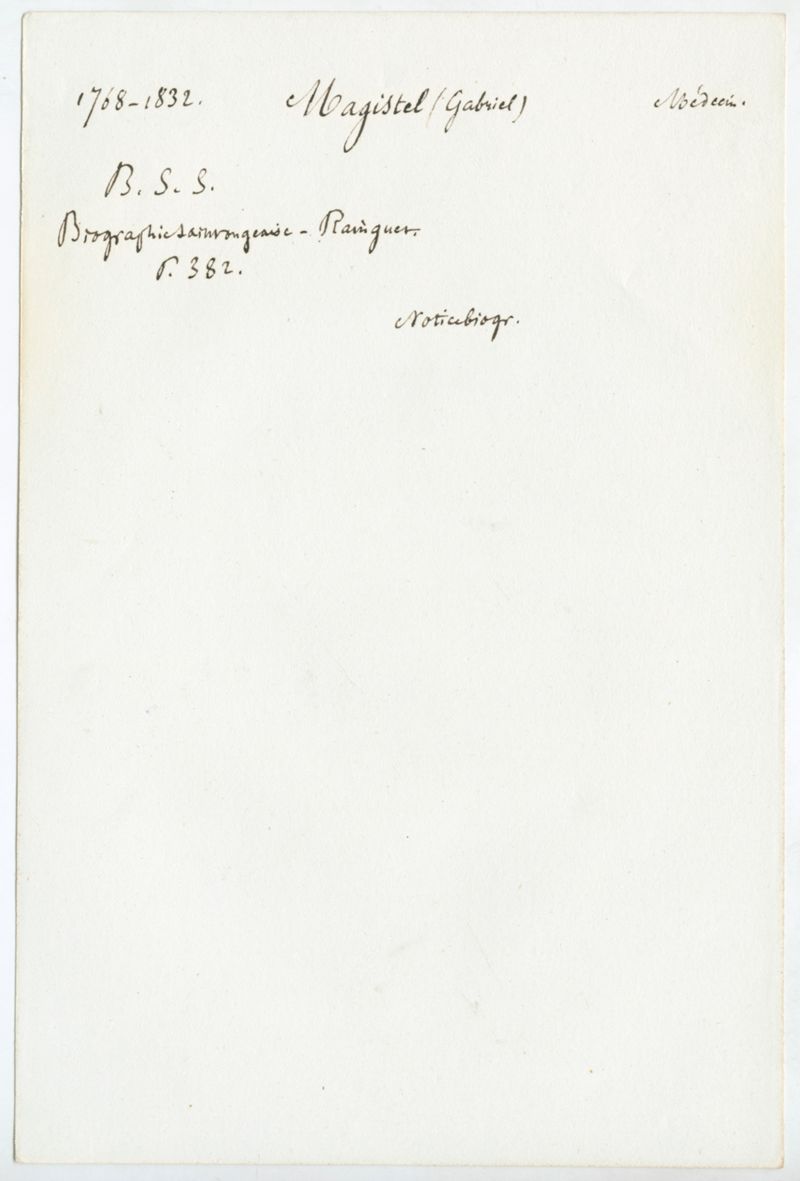 1768-1832. Magistel (Gabriel) Médecin.
B. S. S.
Biographie saintongeaise - Rainguet.
P. 382.
Notice biogr.